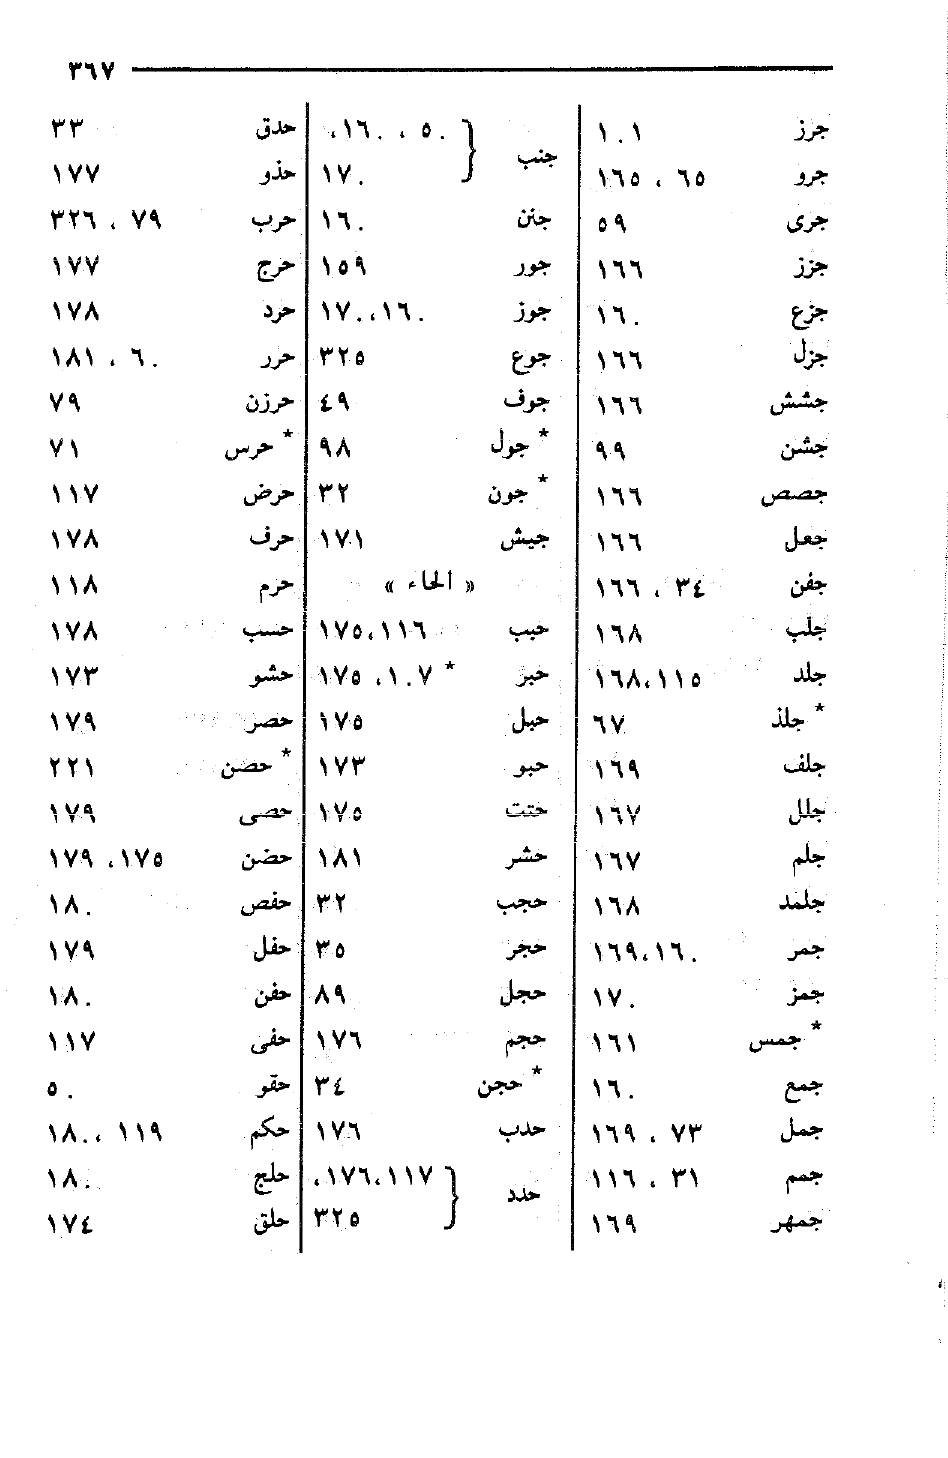 ٣٦٧
جرز ١٠١
جرو ٦٥ ، ١٦٥
جرى ٥٩
جزز ١٦٦
جزع ١٦٠
جزل ١٦٦
جشش ١٦٦
جشن ٩٩
جصص ١٦٦
جعل ١٦٦
جفن ٣٤ ، ١٦٦
جلب ١٦٨
جلد ١١٥،١٦٨
* جلذ ٦٧
جلف ١٦٩
جلل ١٦٧
جلم ١٦٧
جلمد ١٦٨
جمر ١٦٠،١٦٩
جمز ١٧٠
* جمس ١٦١
جمع ١٦٠
جمل ٧٣ ، ١٦٩
جمم ٣١ ، ١١٦
جمهر ١٦٩
جنب { ٥٠ ، ١٦٠،
١٧٠
جنن ١٦٠
جور ١٥٩
جوز ١٦٠،١٧٠
جوع ٣٢٥
جوف ٤٩
* جول ٩٨
* جون ٣٢
جيش ١٧١
« الحاء »
حبب ١١٦،١٧٥
حبر * ١٠٧، ١٧٥
حبل ١٧٥
حبو ١٧٣
حتت ١٧٥
حشر ١٨١
حجب ٣٢
حجر ٣٥
حجل ٨٩
حجم ١٧٦
* حجن ٣٤
حدب ١٧٦
حدد { ١١٧،١٧٦،
٣٢٥
حدق ٣٣
حذو ١٧٧
حرب ٧٩ ، ٣٢٦
حرج ١٧٧
حرد ١٧٨
حرر ٦٠ ، ١٨١
حرزن ٧٩
* حرس ٧١
حرض ١١٧
حرف ١٧٨
حرم ١١٨
حسب ١٧٨
حشو ١٧٣
حصر ١٧٩
* حصن ٢٢١
حصى ١٧٩
حضن ١٧٥، ١٧٩
حفص ١٨٠
حفل ١٧٩
حفن ١٨٠
حفى ١١٧
حقو ٥٠
حكم ١١٩ ،١٨٠
حلج ١٨٠
حلق ١٧٤